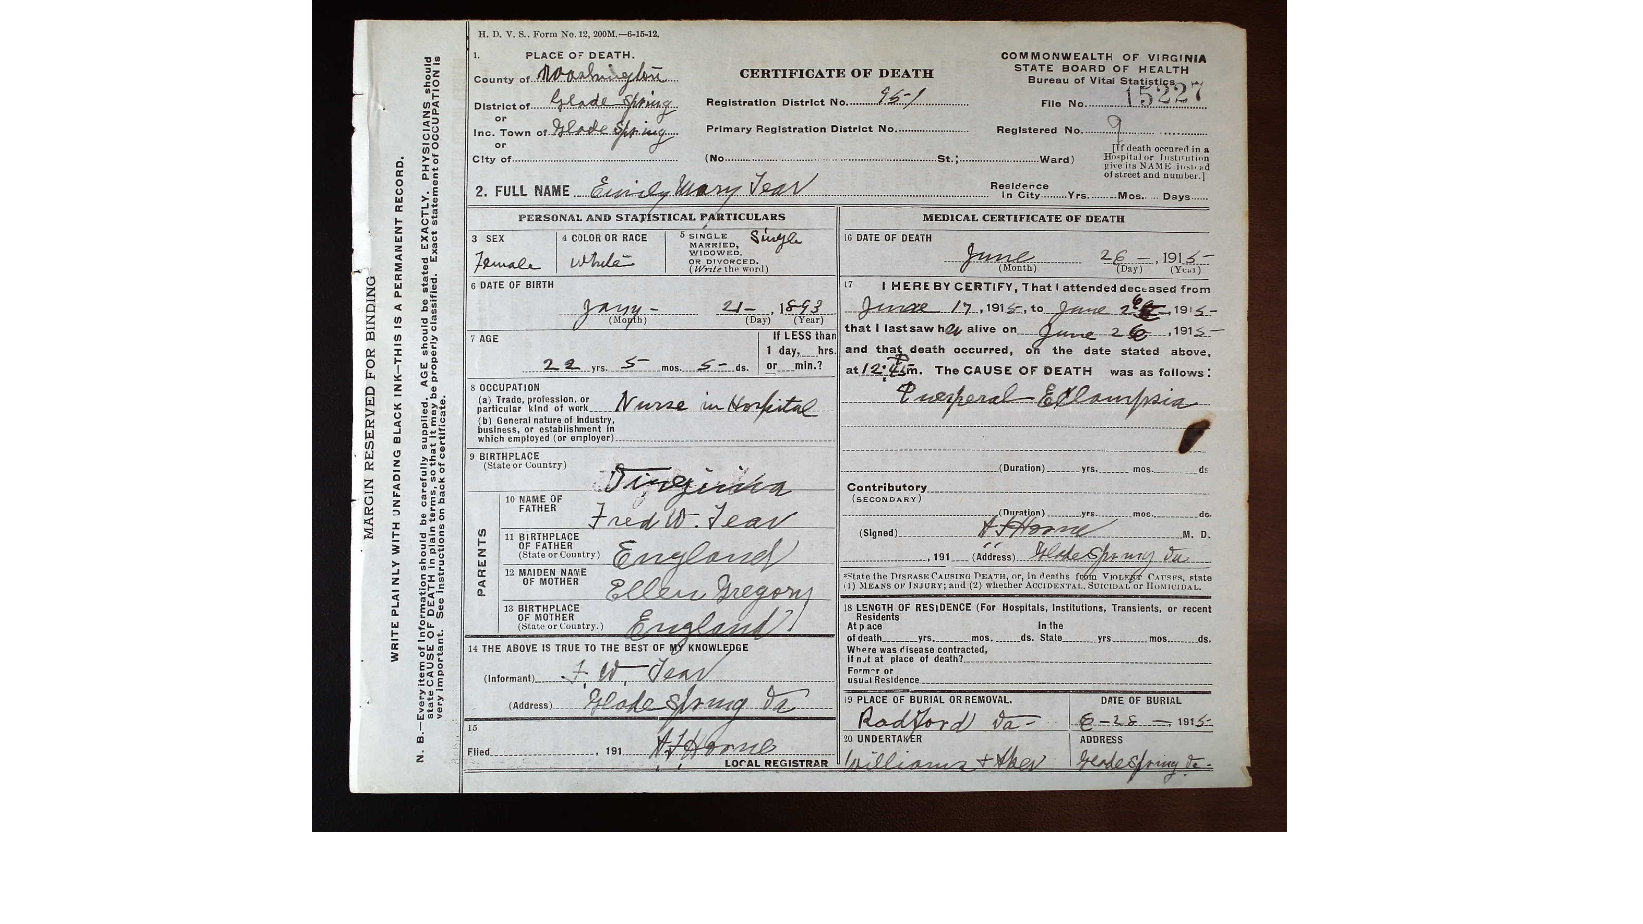 H. D. V. S., Form No. 12, 200M.—6-15-12.
1. PLACE OF DEATH.
County of Washington
District of Glade Spring
or
Inc. Town of Glade Spring
or
City of
CERTIFICATE OF DEATH
Registration District No. 95-1
Primary Registration District No.
(No. St.; Ward)
COMMONWEALTH OF VIRGINIA
STATE BOARD OF HEALTH
Bureau of Vital Statistics
File No. 15227
Registered No. 9
[If death occured in a
Hospital or Institution
give its NAME instead
of street and number.]
2. FULL NAME Emily Mary Tear
Residence
In City Yrs. Mos. Days
PERSONAL AND STATISTICAL PARTICULARS
3 SEX
Female
4 COLOR OR RACE
White
5 SINGLE
MARRIED,
WIDOWED,
OR DIVORCED.
(Write the word)
Single
6 DATE OF BIRTH
Jany - 21-, 1893
(Month) (Day) (Year)
7 AGE
22 yrs. 5- mos. 5- ds.
If LESS than
1 day, hrs.
or min.?
8 OCCUPATION
(a) Trade, profession, or
particular kind of work Nurse in Hospital
(b) General nature of Industry,
business, or establishment in
which employed (or employer)
9 BIRTHPLACE
(State or Country)
Virginia
PARENTS
10 NAME OF
FATHER
Fred W. Tear
11 BIRTHPLACE
OF FATHER
(State or Country) England
12 MAIDEN NAME
OF MOTHER Ellen Gregory
13 BIRTHPLACE
OF MOTHER
(State or Country.) England
14 THE ABOVE IS TRUE TO THE BEST OF MY KNOWLEDGE
(Informant) F. W. Tear
(Address) Glade Spring Va
15
Filed , 191
LOCAL REGISTRAR
MEDICAL CERTIFICATE OF DEATH
16 DATE OF DEATH
June 26 -, 1915-
(Month) (Day) (Year)
17 I HEREBY CERTIFY, That I attended deceased from
June 17, 1915-, to June 26, 1915-
that I last saw her alive on June 26, 1915-
and that death occurred, on the date stated above,
at 12:45 m. The CAUSE OF DEATH was as follows:
Puerperal Eclampsia
(Duration) yrs. mos. ds
Contributory
(SECONDARY)
(Duration) yrs. mos. ds.
(Signed) M. D.
, 191 (Address) Glade Spring Va
*State the DISEASE CAUSING DEATH, or, in deaths from VIOLENT CAUSES, state
(1) MEANS OF INJURY; and (2) whether ACCIDENTAL, SUICIDAL or HOMICIDAL.
18 LENGTH OF RESIDENCE (For Hospitals, Institutions, Transients, or recent
Residents
At place In the
of death yrs. mos. ds. State yrs mos. ds.
Where was disease contracted,
If not at place of death?
Former or
usual Residence
19 PLACE OF BURIAL OR REMOVAL.
Radford Va-
DATE OF BURIAL
6-28 -, 1915-
20 UNDERTAKER
Williams +
ADDRESS
Glade Spring Va-
MARGIN RESERVED FOR BINDING
WRITE PLAINLY WITH UNFADING BLACK INK—THIS IS A PERMANENT RECORD.
N. B.—Every item of Information should be carefully supplied. AGE should be stated EXACTLY. PHYSICIANS should
state CAUSE OF DEATH in plain terms, so that it may be properly classified. Exact statement of OCCUPATION is
very important. See instructions on back of certificate.